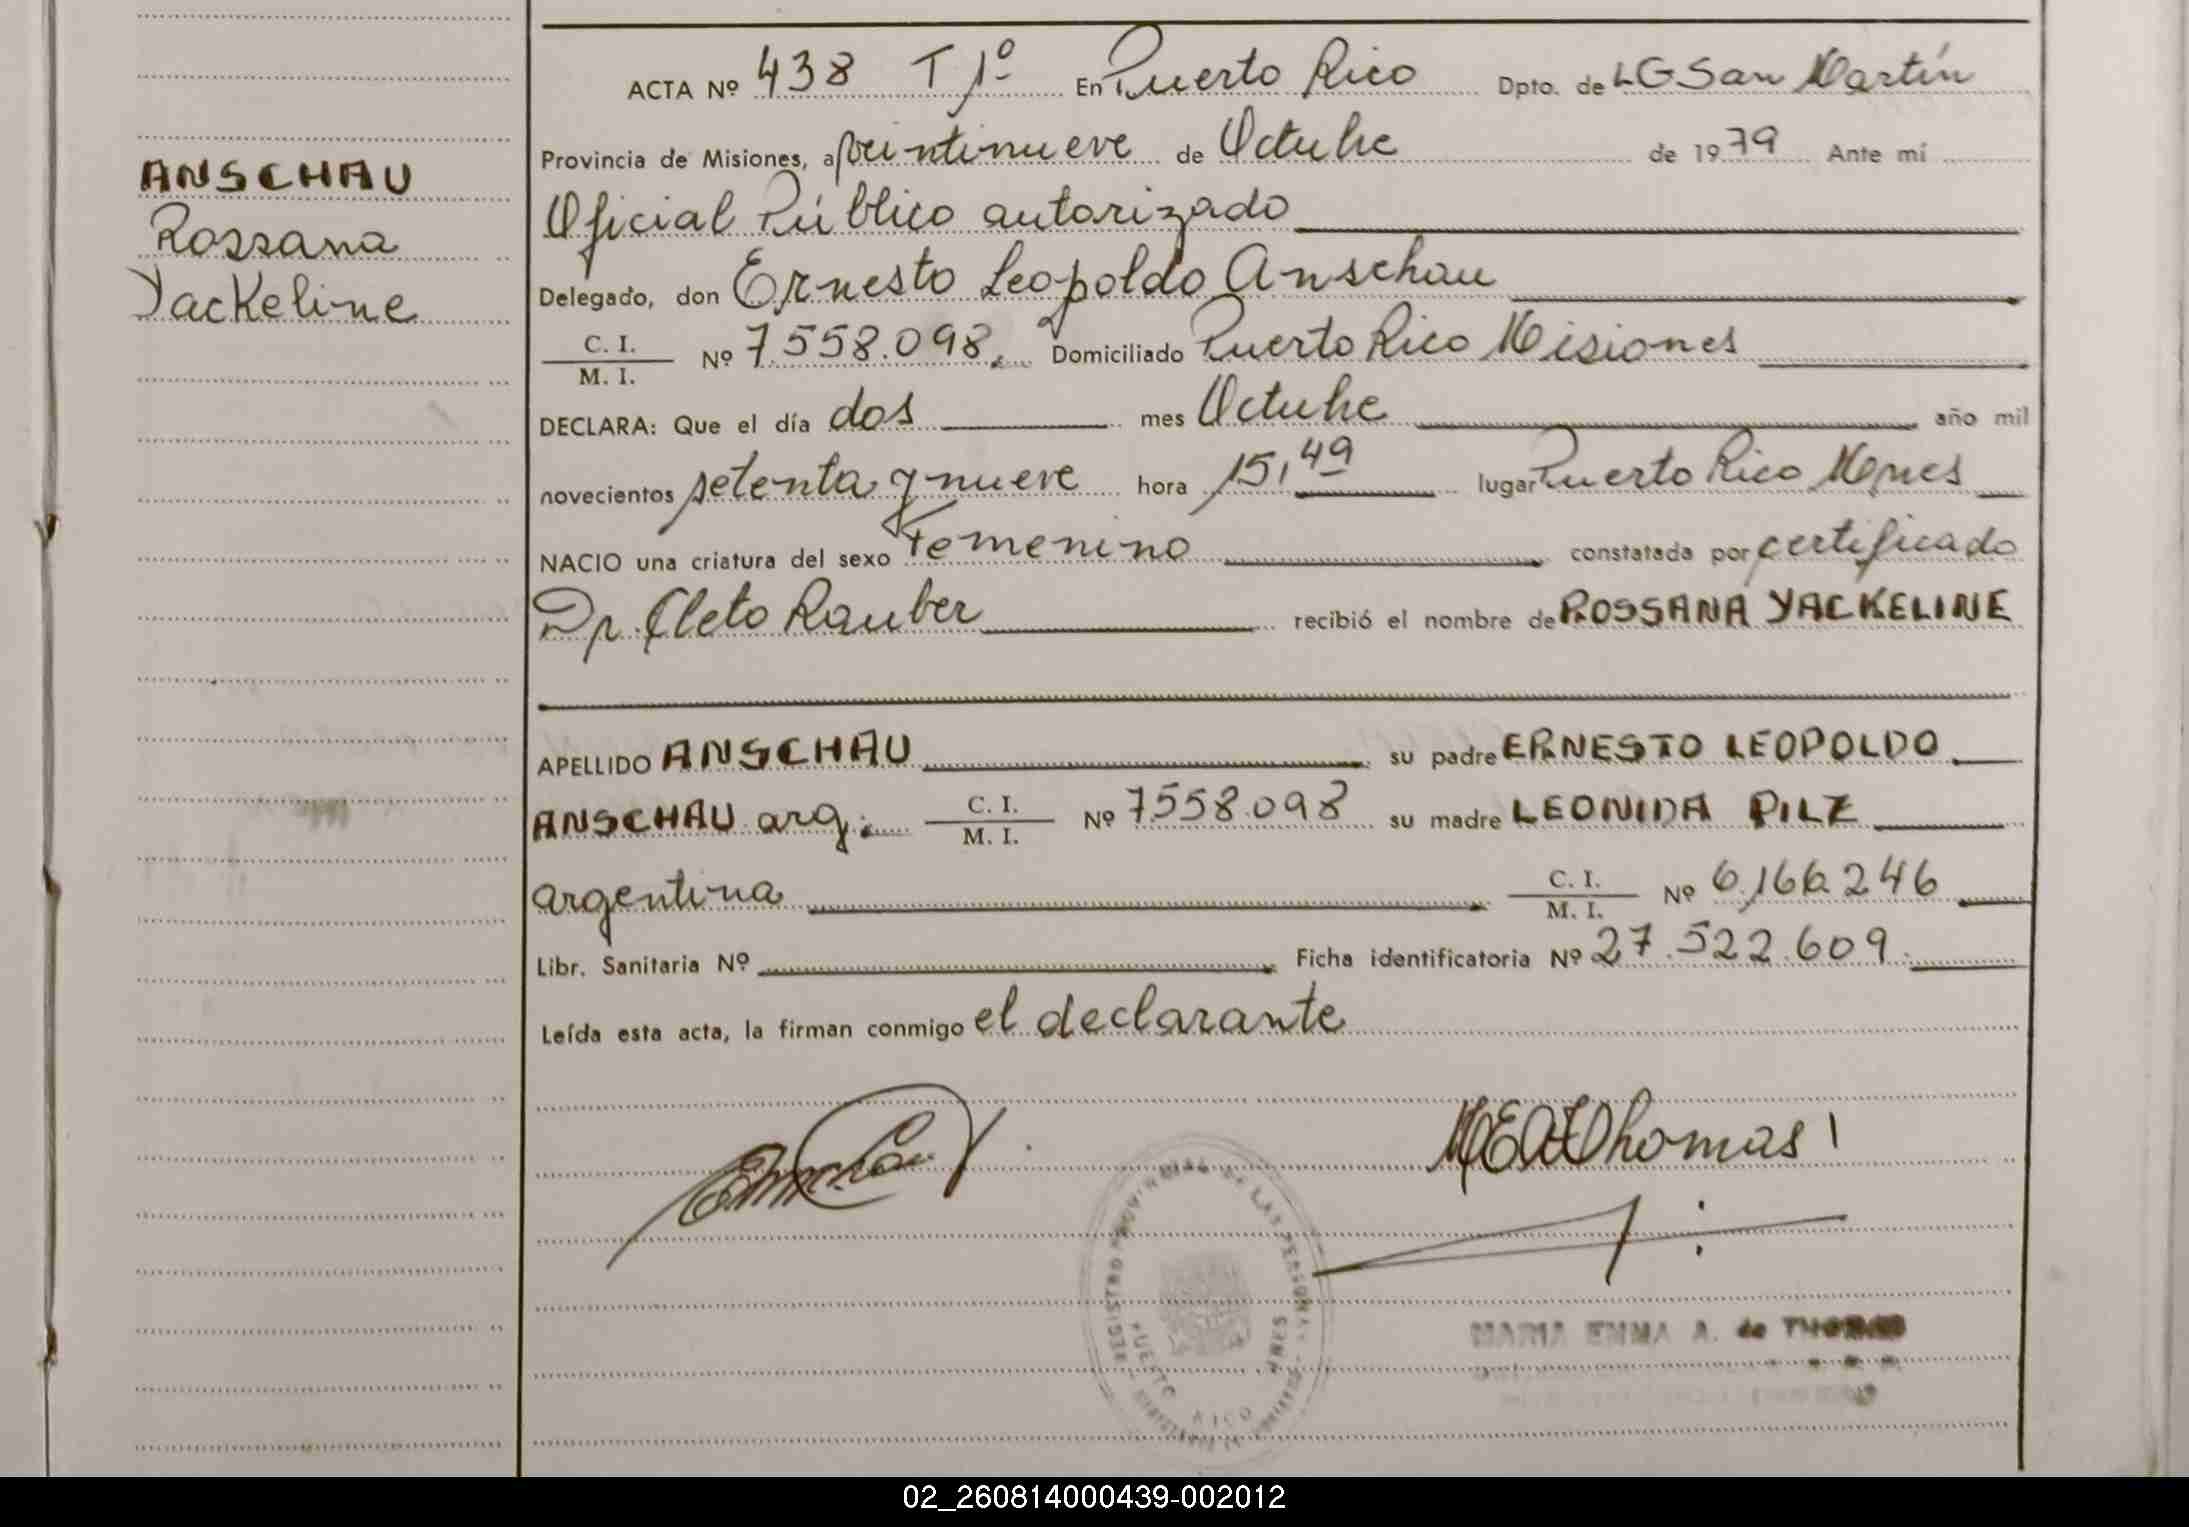 ANSCHAU
Rossana
Yackeline
ACTA Nº 438 T 1º En Puerto Rico Dpto. de LG San Martín
Provincia de Misiones, a veintinueve de Octubre de 1979 Ante mí
Oficial Público autorizado
Delegado, don Ernesto Leopoldo Anschau
C. I.
M. I. Nº 7.558.098. Domiciliado Puerto Rico Misiones
DECLARA: Que el día dos mes Octubre año mil
novecientos setenta y nueve hora 15,49 lugar Puerto Rico Mnes
NACIO una criatura del sexo Femenino constatada por certificado
Dr. Cleto Rauber recibió el nombre de ROSSANA YACKELINE
APELLIDO ANSCHAU su padre ERNESTO LEOPOLDO
ANSCHAU arg. C. I. M. I. Nº 7.558.098 su madre LEONIDA PILZ
argentina C. I. M. I. Nº 6.166.246
Libr. Sanitaria Nº Ficha identificatoria Nº 27.522.609.
Leída esta acta, la firman conmigo el declarante
MEA de Thomas
REGISTRO PROVINCIAL DE LAS PERSONAS
PUERTO RICO MNES
MARIA EMMA A. de THOMAS
02_260814000439-002012